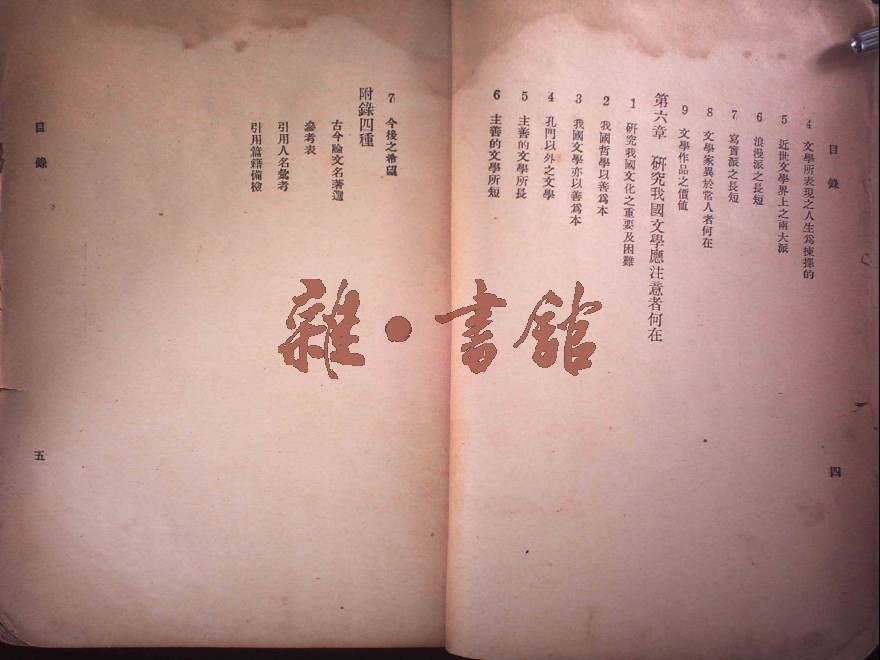 目錄
4 文學所表現之人生爲揀擇的
5 近世文學界上之兩大派
6 浪漫派之長短
7 寫實派之長短
8 文學家異於常人者何在
9 文學作品之價値
第六章 研究我國文學應注意者何在
1 硏究我國文化之重要及困難
2 我國哲學以善爲本
3 我國文學亦以善爲本
4 孔門以外之文學
5 主善的文學所長
6 主善的文學所短
四
7 今後之希望
附錄四種
古今論文名著選
參考表
引用人名彙考
引用篇籍備檢
目錄
五
雜·書館